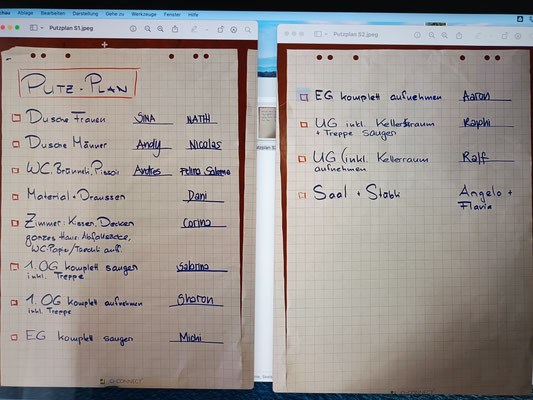 Ablage Bearbeiten Darstellung Gehe zu Werkzeuge Fenster Hilfe
Putzplan S1.jpeg
PUTZ-PLAN
Dusche Frauen SINA NATHI
Dusche Männer Andy Nicolas
WC, Brünneli, Pissoir Andres
Material + Draussen Dani
Zimmer: Kissen, Decken Corina
ganzes Haus: Abfallsäcke,
WC-Papier
1. OG komplett saugen Sabrina
inkl. Treppe
1. OG komplett aufnehmen Sharon
inkl. Treppe
EG komplett saugen Michi
CONNECT
Putzplan S2.jpeg
EG komplett aufnehmen Aaron
UG inkl. Kellerraum Raphi
+ Treppe saugen
UG (inkl. Kellerraum Ralf
aufnehmen
Saal + Stübli Angelo +
Flavia